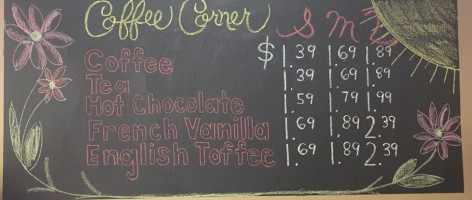 Coffee Corner S M L
Coffee $1.39 1.69 1.89
Tea 1.39 1.69 1.89
Hot Chocolate 1.59 1.79 1.99
French Vanilla 1.69 1.89 2.39
English Toffee 1.69 1.89 2.39